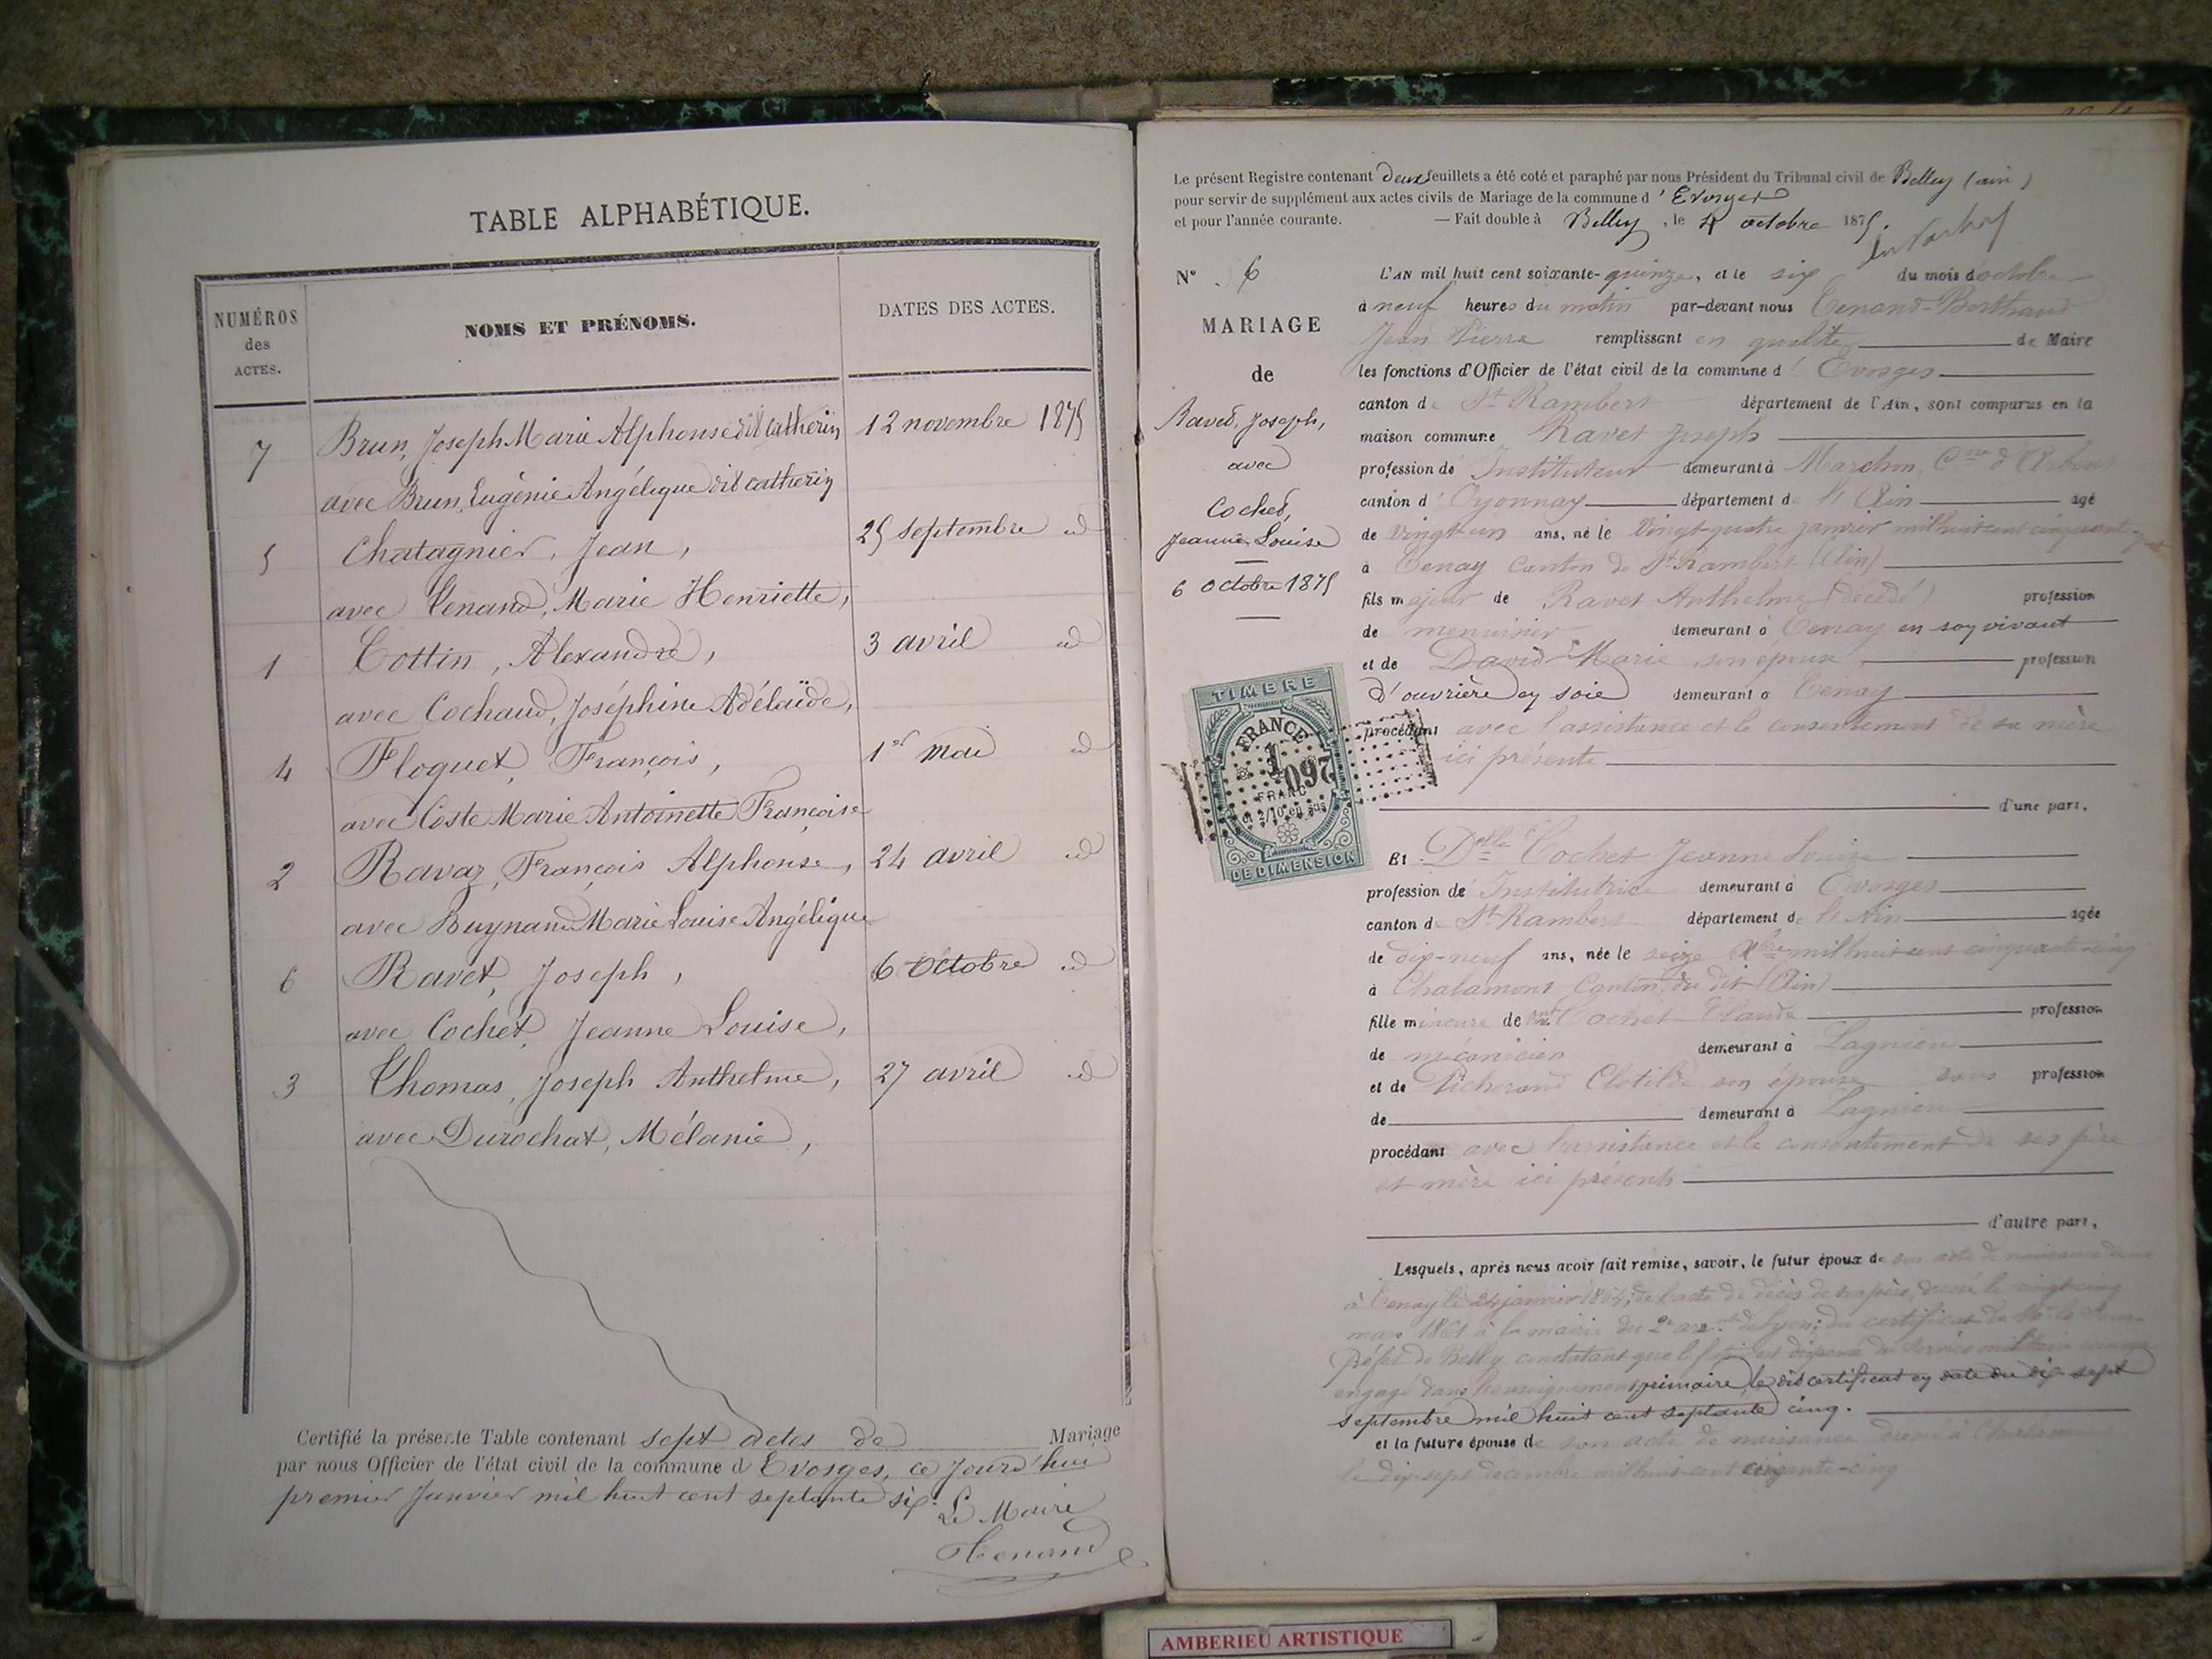 TABLE ALPHABÉTIQUE.
NUMÉROS des ACTES.
NOMS ET PRÉNOMS.
DATES DES ACTES.
7 Brun, Joseph Marie Alphonse dit Catherin 12 novembre 1875
avec Brun, Eugénie Angélique dit catherin
5 Chatagnier, Jean, 25 septembre id
avec Tenand, Marie Henriette,
1 Cottin, Alexandre, 3 avril id
avec Cochaud, Joséphine Adélaïde,
4 Floquet, François, 1er mai id
avec Coste Marie Antoinette Françoise
2 Ravaz, François Alphonse, 24 avril id
avec Buynand Marie Louise Angélique
6 Ravet, Joseph, 6 Octobre id
avec Cochet, Jeanne Louise,
3 Thomas, Joseph Anthelme, 27 avril id
avec Durochat, Mélanie,
Certifié la présente Table contenant sept actes de Mariage
par nous Officier de l'état civil de la commune d'Evosges, ce jourd'hui
premier Janvier mil huit cent septante six. Le Maire
Tenand
Le présent Registre contenant deux feuillets a été coté et paraphé par nous Président du Tribunal civil de Belley (ain)
pour servir de supplément aux actes civils de Mariage de la commune d'Evosges
et pour l'année courante. — Fait double à Belley, le 4 octobre 1875.
N° 6
MARIAGE
de
Ravet, Joseph,
avec
Cochet,
Jeanne Louise
6 octobre 1875
TIMBRE
FRANCE
1
097
FRANC
et 2/10 en sus
DE DIMENSION
L'AN mil huit cent soixante-quinze, et le six du mois d'octobre
à neuf heures du matin par-devant nous Tenand-Berthaud
Jean Pierre remplissant en qualité de Maire
les fonctions d'Officier de l'état civil de la commune d'Evosges
canton de St Rambert département de l'Ain, sont comparus en la
maison commune Ravet Joseph
profession de Instituteur demeurant à Marchon, Cne d'Arbent
canton d'Oyonnay département de l'Ain agé
de vingt-un ans, né le vingt-quatre janvier mil huit cent cinquante-
à Tenay Canton de St Rambert (Ain)
fils majeur de Ravet Anthelme (décédé) profession
de menuisier demeurant à Tenay en soy vivant
et de David Marie son épouse profession
d'ouvrière en soie demeurant à Tenay
procédant avec l'assistance et le consentement de sa mère
ici présente
d'une part.
Et Delle Cochet Jeanne Louise
profession de Institutrice demeurant à Evosges
canton de St Rambert département de l'Ain agée
de dix-neuf ans, née le seize Xbre mil huit cent cinquante-cinq
à Chalamont Canton du dit (Ain)
fille mineure de Cochet Claude profession
de mécanicien demeurant à Lagnieu
et de Picherand Clotilde son épouse sans profession
de demeurant à Lagnieu
procédant avec l'assistance et le consentement de ses père
et mère ici présents
d'autre part,
Lesquels, après nous avoir fait remise, savoir, le futur époux de son acte de naissance
à Tenay le 24 janvier 1854; de l'acte de décès de son père, dressé le vingt-cinq
mars 1861 à la mairie du 2e arrt de Lyon; du certificat de Mr le Sous-
Préfet de Belley constatant que le futur est dispensé du service militaire comme
engagé dans l'enseignement primaire, le dit certificat en date du dix sept
septembre mil huit cent septante cinq.
et la future épouse de son acte de naissance dressé à Chalamont
le dix-sept décembre mil huit cent cinquante-cinq
AMBERIEU ARTISTIQUE